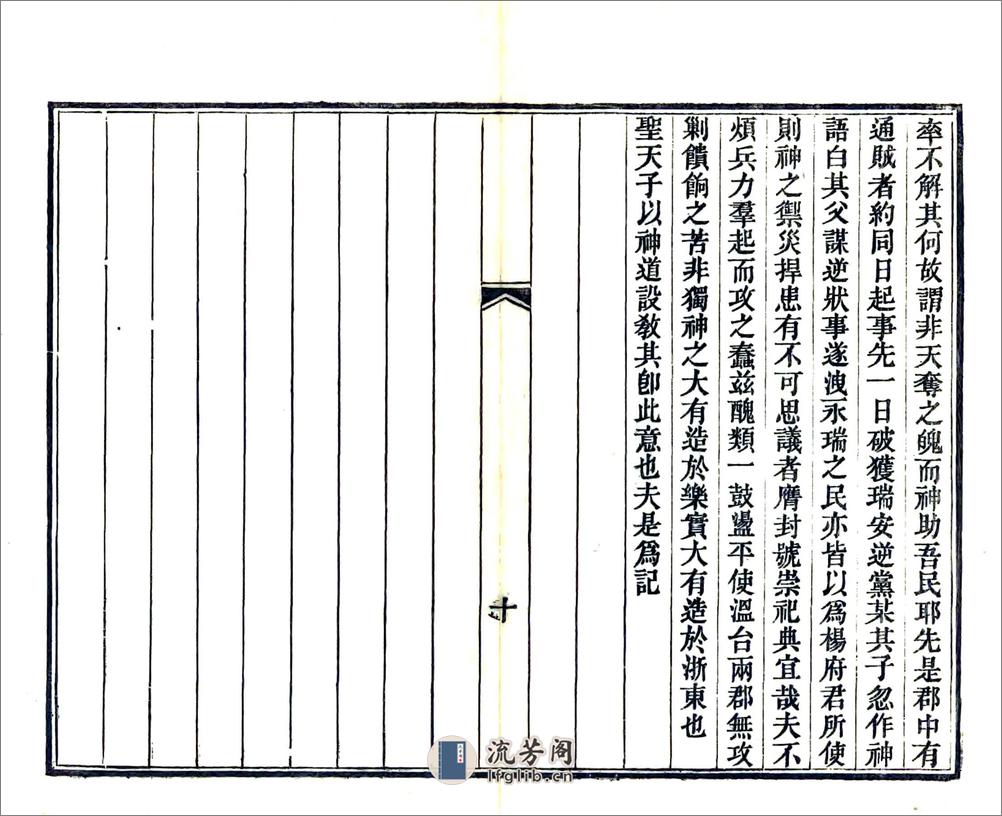 率不解其何故謂非天奪之魄而神助吾民耶先是郡中有
通賊者約同日起事先一日破獲瑞安逆黨某其子忽作神
語白其父謀逆狀事遂洩永瑞之民亦皆以爲楊府君所使
則神之禦災捍患有不可思議者膺封號崇祀典宜哉夫不
煩兵力羣起而攻之蠢兹醜類一鼓盪平使溫台兩郡無攻
剿饋餉之苦非獨神之大有造於樂實大有造於浙東也
聖天子以神道設教其卽此意也夫是爲記
十
流芳阁
lfglib.cn